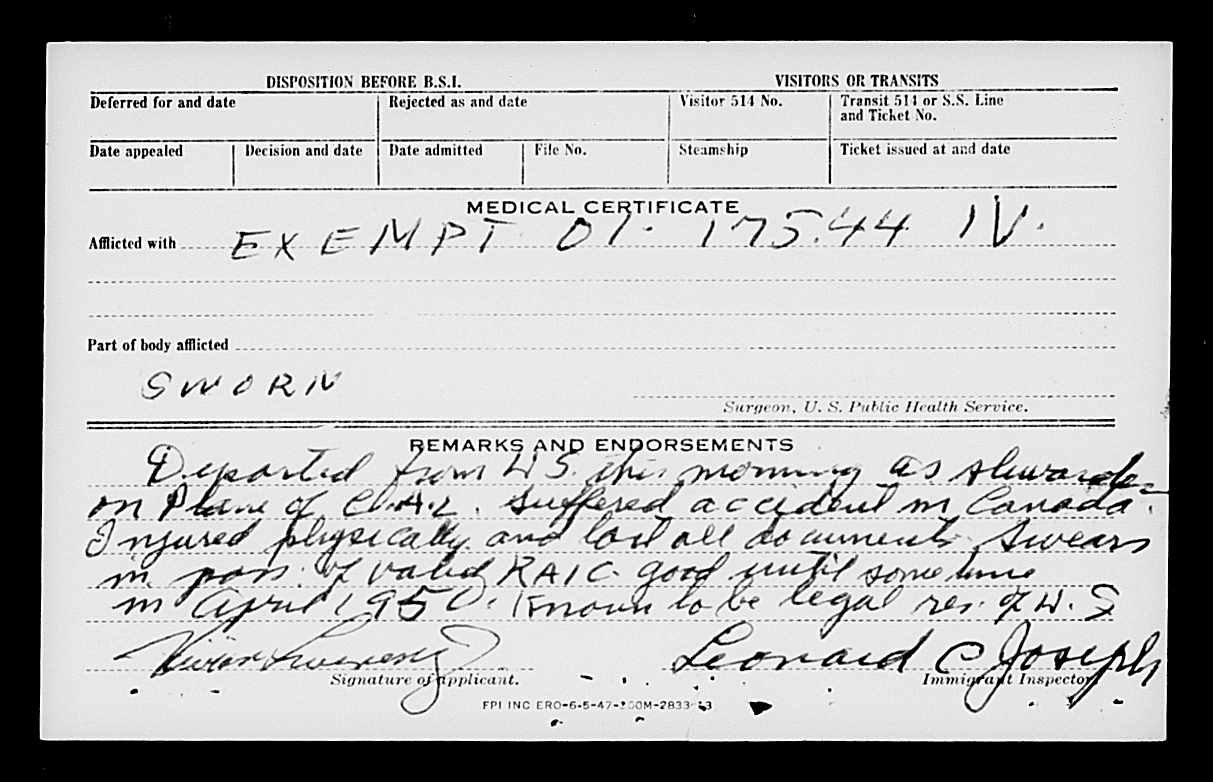 DISPOSITION BEFORE B.S.I. VISITORS OR TRANSITS
Deferred for and date Rejected as and date Visitor 514 No. Transit 514 or S.S. Line
and Ticket No.
Date appealed Decision and date Date admitted File No. Steamship Ticket issued at and date
MEDICAL CERTIFICATE
Afflicted with EXEMPT 01. 175.44 IV.
Part of body afflicted
SWORN
Surgeon, U. S. Public Health Service.
REMARKS AND ENDORSEMENTS
Departed from US this morning as
on Plane of suffered accident in Canada.
Injured physically and lost all documents. Swears
in poss. of valid RAIC good until sometime
in April 1950. Known to be legal res. of U.S
Leonard C Joseph
Signature of applicant. Immigrant Inspector
FPI INC ERO-6-5-47-